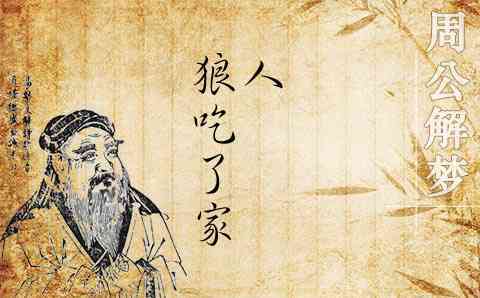 周公解梦
狼吃了家
人